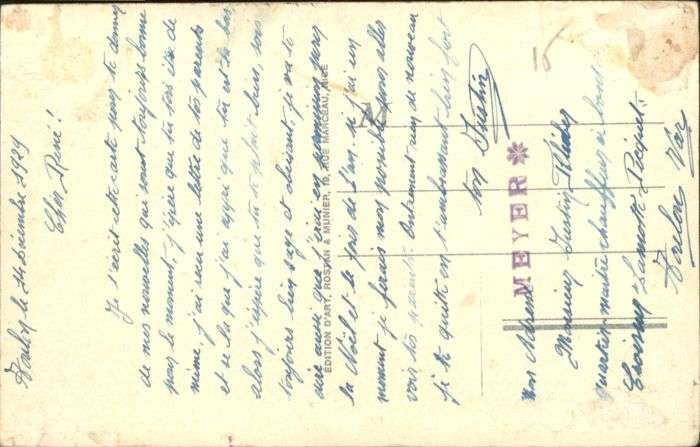 Toulon le 24 Décembre 1929
Cher René!
Je t'écrit cette carte pour te donner
de mes nouvelles qui sont toujours bonne
pour le moment, j'éspère que tu sois de
même, j'ai reçu une lettre de tes parents
et se la que j'ai appri que tu est la bas,
alors j'éspère que tu te plait bien, sois
toujours bien sage et obéisant, je vai te
dire aussi que j'irai en permission pour
la Noël et le jour de l'an, si j'ai un
moment je ferais mon possible pour aller
voir tes parents. Autrement rien de nouveau
je te quitte en t'embrassant bien fort
ton Justin
ÉDITION D'ART, ROSTAN & MUNIER, 19, RUE MARCEAU, NICE
MEYER*
Mon Adresse
Monsieur Justin
quartier maitre chauffeur à bord
Croiseur Lamotte-Picquet
Toulon Var